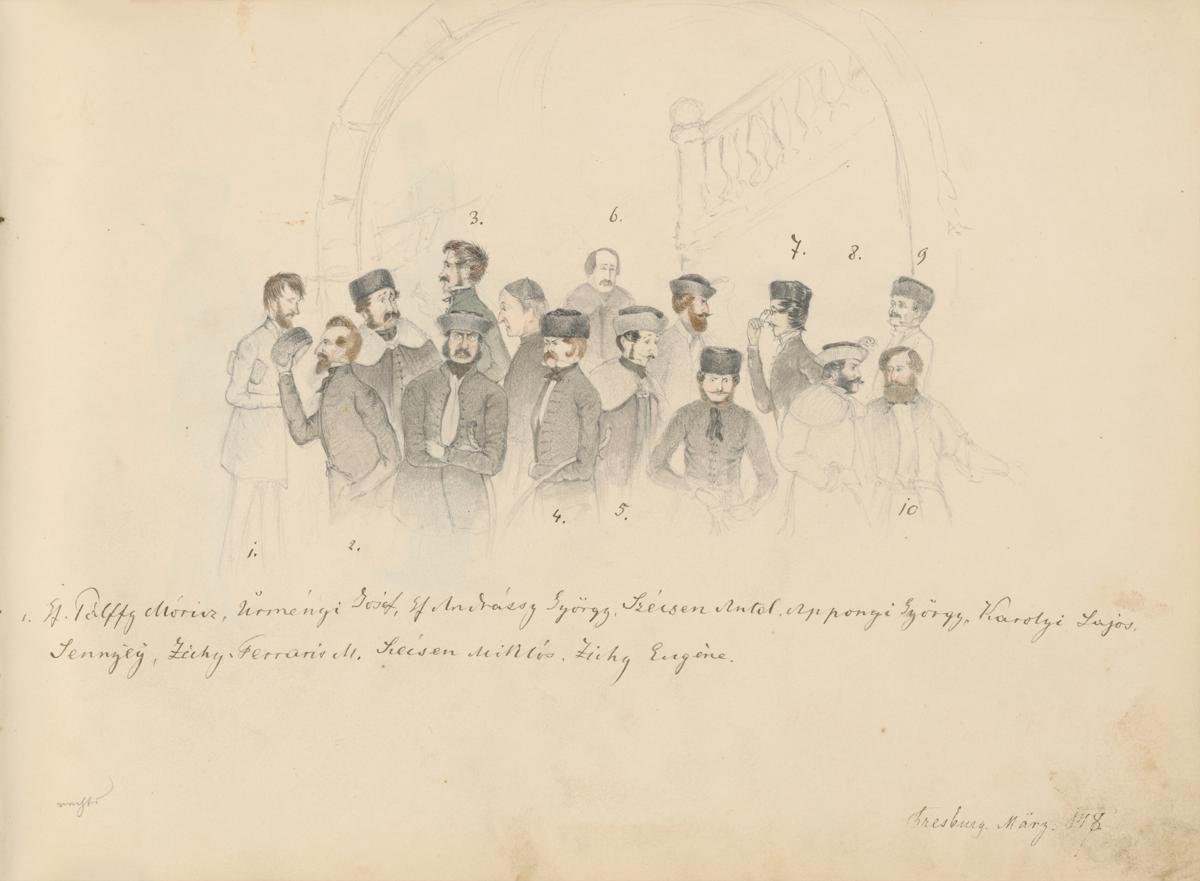 3.
6.
7.
8.
9
4.
5.
10
1.
2.
1. Gf. Pálffy Móricz, Ürményi Josef, Gf Andrássy György. Szécsen Antal. Apponyi György. Karolyi Lajos.
Sennyëy, Zichy-Ferraris M. Szécsen Miklós. Zichy Eugène.
rechts
Presburg. März.